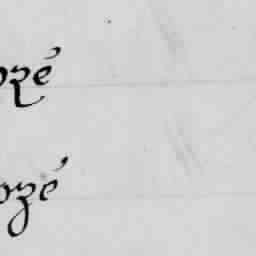 ozé
ozé